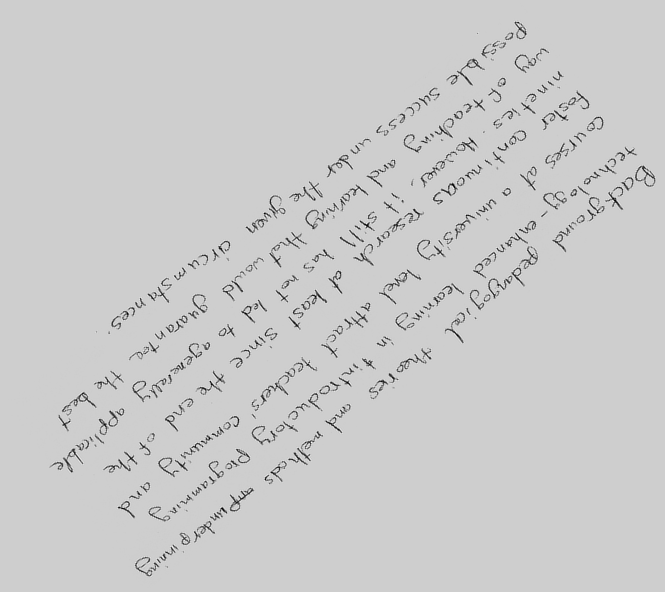 Background pedagogical theories and methods underpinning
technology-enhanced learning in introductory programming
courses at a university level attract teachers' community and
foster continuous research at least since the end of the
nineties. However, it still has not led to a generally applicable
way of teaching and learning that would guarantee the best
possible success under the given circumstances.